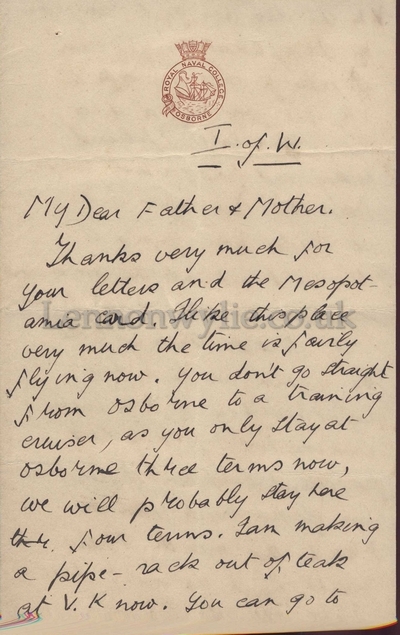 ROYAL NAVAL COLLEGE
OSBORNE
I. of. W.
My Dear Father & Mother.
Thanks very much for
your letters and the Mesopot-
amia card I like this place
very much the time is fairly
flying now. You don't go straight
from Osborne to a training
cruiser, as you only stay at
Osborne three terms now,
we will probably stay here
four terms. I am making
a pipe-rack out of teak
at V. K now. You can go to
Lennonwylie.co.uk